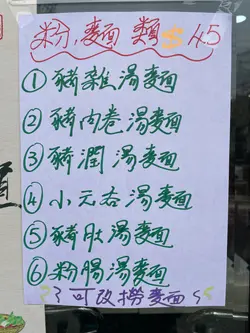 粉,麵 類 $45
① 豬雜湯麵
② 豬肉卷湯麵
③ 豬潤湯麵
④ 小元右湯麵
⑤ 豬肚湯麵
⑥ 粉腸湯麵
可改撈麵